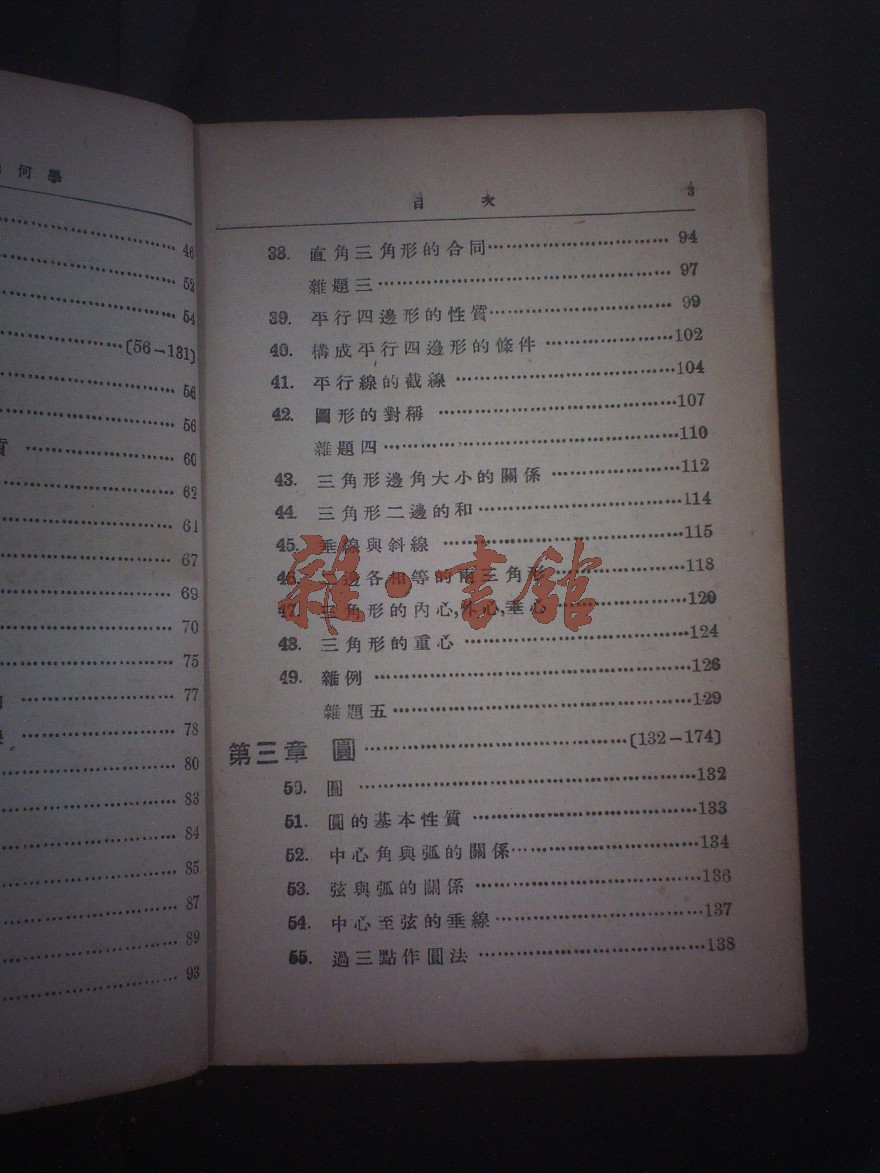 何學
46
52
54
〔56—131〕
56
56
60
62
61
67
69
70
75
77
78
80
83
84
85
87
89
93
目 次 3
38. 直角三角形的合同 94
雜題三 97
39. 平行四邊形的性質 99
40. 構成平行四邊形的條件 102
41. 平行線的截線 104
42. 圖形的對稱 107
雜題四 110
43. 三角形邊角大小的關係 112
44. 三角形二邊的和 114
45. 垂線與斜線 115
46. 二边各相等的兩三角形 118
47. 三角形的內心,外心,垂心 120
48. 三角形的重心 124
49. 雜例 126
雜題五 129
第三章 圓 〔132—174〕
50. 圓 132
51. 圓的基本性質 133
52. 中心角與弧的關係 134
53. 弦與弧的關係 136
54. 中心至弦的垂線 137
55. 過三點作圓法 138
雜·書館